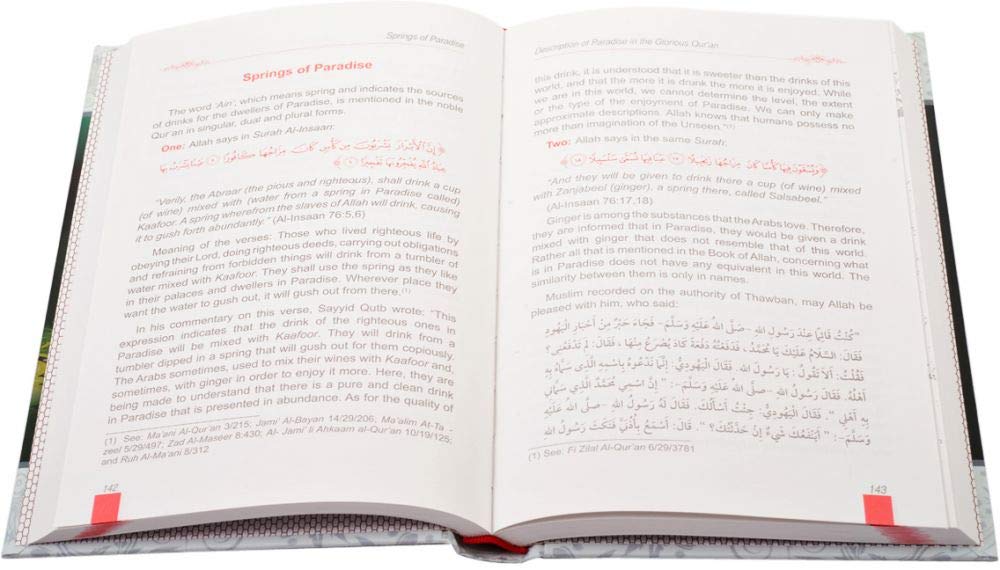 Springs of Paradise
Springs of Paradise
The word ‘Ain’, which means spring and indicates the sources
of drinks for the dwellers of Paradise, is mentioned in the noble
Qur’an in singular, dual and plural forms.
One: Allah says in Surah Al-Insaan:
﴿إِنَّ الْأَبْرَارَ يَشْرَبُونَ مِن كَأْسٍ كَانَ مِزَاجُهَا كَافُورًا ۝ عَيْنًا يَشْرَبُ بِهَا
عِبَادُ اللَّهِ يُفَجِّرُونَهَا تَفْجِيرًا﴾
“Verily, the Abraar (the pious and righteous), shall drink a cup
(of wine) mixed with (water from a spring in Paradise called)
Kaafoor. A spring wherefrom the slaves of Allah will drink, causing
it to gush forth abundantly.” (Al-Insaan 76:5,6)
Meaning of the verses: Those who lived righteous life by
obeying their Lord, doing righteous deeds, carrying out obligations
and refraining from forbidden things will drink from a tumbler of
water mixed with Kaafoor. They shall use the spring as they like
in their palaces and dwellers in Paradise. Wherever place they
want the water to gush out, it will gush out from there.(1)
In his commentary on this verse, Sayyid Qutb wrote: “This
expression indicates that the drink of the righteous ones in
Paradise will be mixed with Kaafoor. They will drink from a
tumbler dipped in a spring that will gush out for them copiously.
The Arabs sometimes, used to mix their wines with Kaafoor and,
sometimes, with ginger in order to enjoy it more. Here, they are
being made to understand that there is a pure and clean drink
in Paradise that is presented in abundance. As for the quality of
(1) See: Ma’ani Al-Qur’an 3/215; Jami’ Al-Bayan 14/29/206; Ma’alim At-Ta -
zeel 5/29/497; Zad Al-Maseer 8:430; Al- Jami’ li Ahkaam al-Qur’an 10/19/125;
and Ruh Al-Ma’ani 8/312
142
Description of Paradise in the Glorious Qur’an
this drink, it is understood that it is sweeter than the drinks of this
world, and that the more it is drunk the more it is enjoyed. While
we are in this world, we cannot determine the level, the extent
or the type of the enjoyment of Paradise. We can only make
approximate descriptions. Allah knows that humans possess no
more than imagination of the Unseen.”(1)
Two: Allah says in the same Surah:
﴿وَيُسْقَوْنَ فِيهَا كَأْسًا كَانَ مِزَاجُهَا زَنجَبِيلًا ۝ عَيْنًا فِيهَا تُسَمَّىٰ سَلْسَبِيلًا﴾
“And they will be given to drink there a cup (of wine) mixed
with Zanjabeel (ginger), a spring there, called Salsabeel.”
(Al-Insaan 76:17,18)
Ginger is among the substances that the Arabs love. Therefore,
they are informed that in Paradise, they would be given a drink
mixed with ginger that does not resemble that of this world.
Rather all that is mentioned in the Book of Allah, concerning what
is in Paradise does not have any equivalent in this world. The
similarity between them is only in names.
Muslim recorded on the authority of Thawban, may Allah be
pleased with him, who said:
“كُنْتُ قَائِمًا عِنْدَ رَسُولِ اللهِ -صَلَّى اللهُ عَلَيْهِ وَسَلَّمَ- فَجَاءَ حَبْرٌ مِنْ أَحْبَارِ الْيَهُودِ
فَقَالَ: السَّلَامُ عَلَيْكَ يَا مُحَمَّدُ، فَدَفَعْتُهُ دَفْعَةً كَادَ يُصْرَعُ مِنْهَا، فَقَالَ: لِمَ تَدْفَعُنِي؟
فَقُلْتُ: أَلَا تَقُولُ: يَا رَسُولَ اللهِ. فَقَالَ الْيَهُودِيُّ: إِنَّمَا نَدْعُوهُ بِاسْمِهِ الَّذِي سَمَّاهُ بِهِ
أَهْلُهُ. فَقَالَ رَسُولُ اللهِ -صَلَّى اللهُ عَلَيْهِ وَسَلَّمَ-: ”إِنَّ اسْمِي مُحَمَّدٌ الَّذِي سَمَّانِي
بِهِ أَهْلِي“. فَقَالَ الْيَهُودِيُّ: جِئْتُ أَسْأَلُكَ. فَقَالَ لَهُ رَسُولُ اللهِ -صَلَّى اللهُ عَلَيْهِ
وَسَلَّمَ-: ”أَيَنْفَعُكَ شَيْءٌ إِنْ حَدَّثْتُكَ؟“. قَالَ: أَسْمَعُ بِأُذُنَيَّ فَنَكَتَ رَسُولُ اللهِ
(1) See: Fi Zilal Al-Qur’an 6/29/3781
143